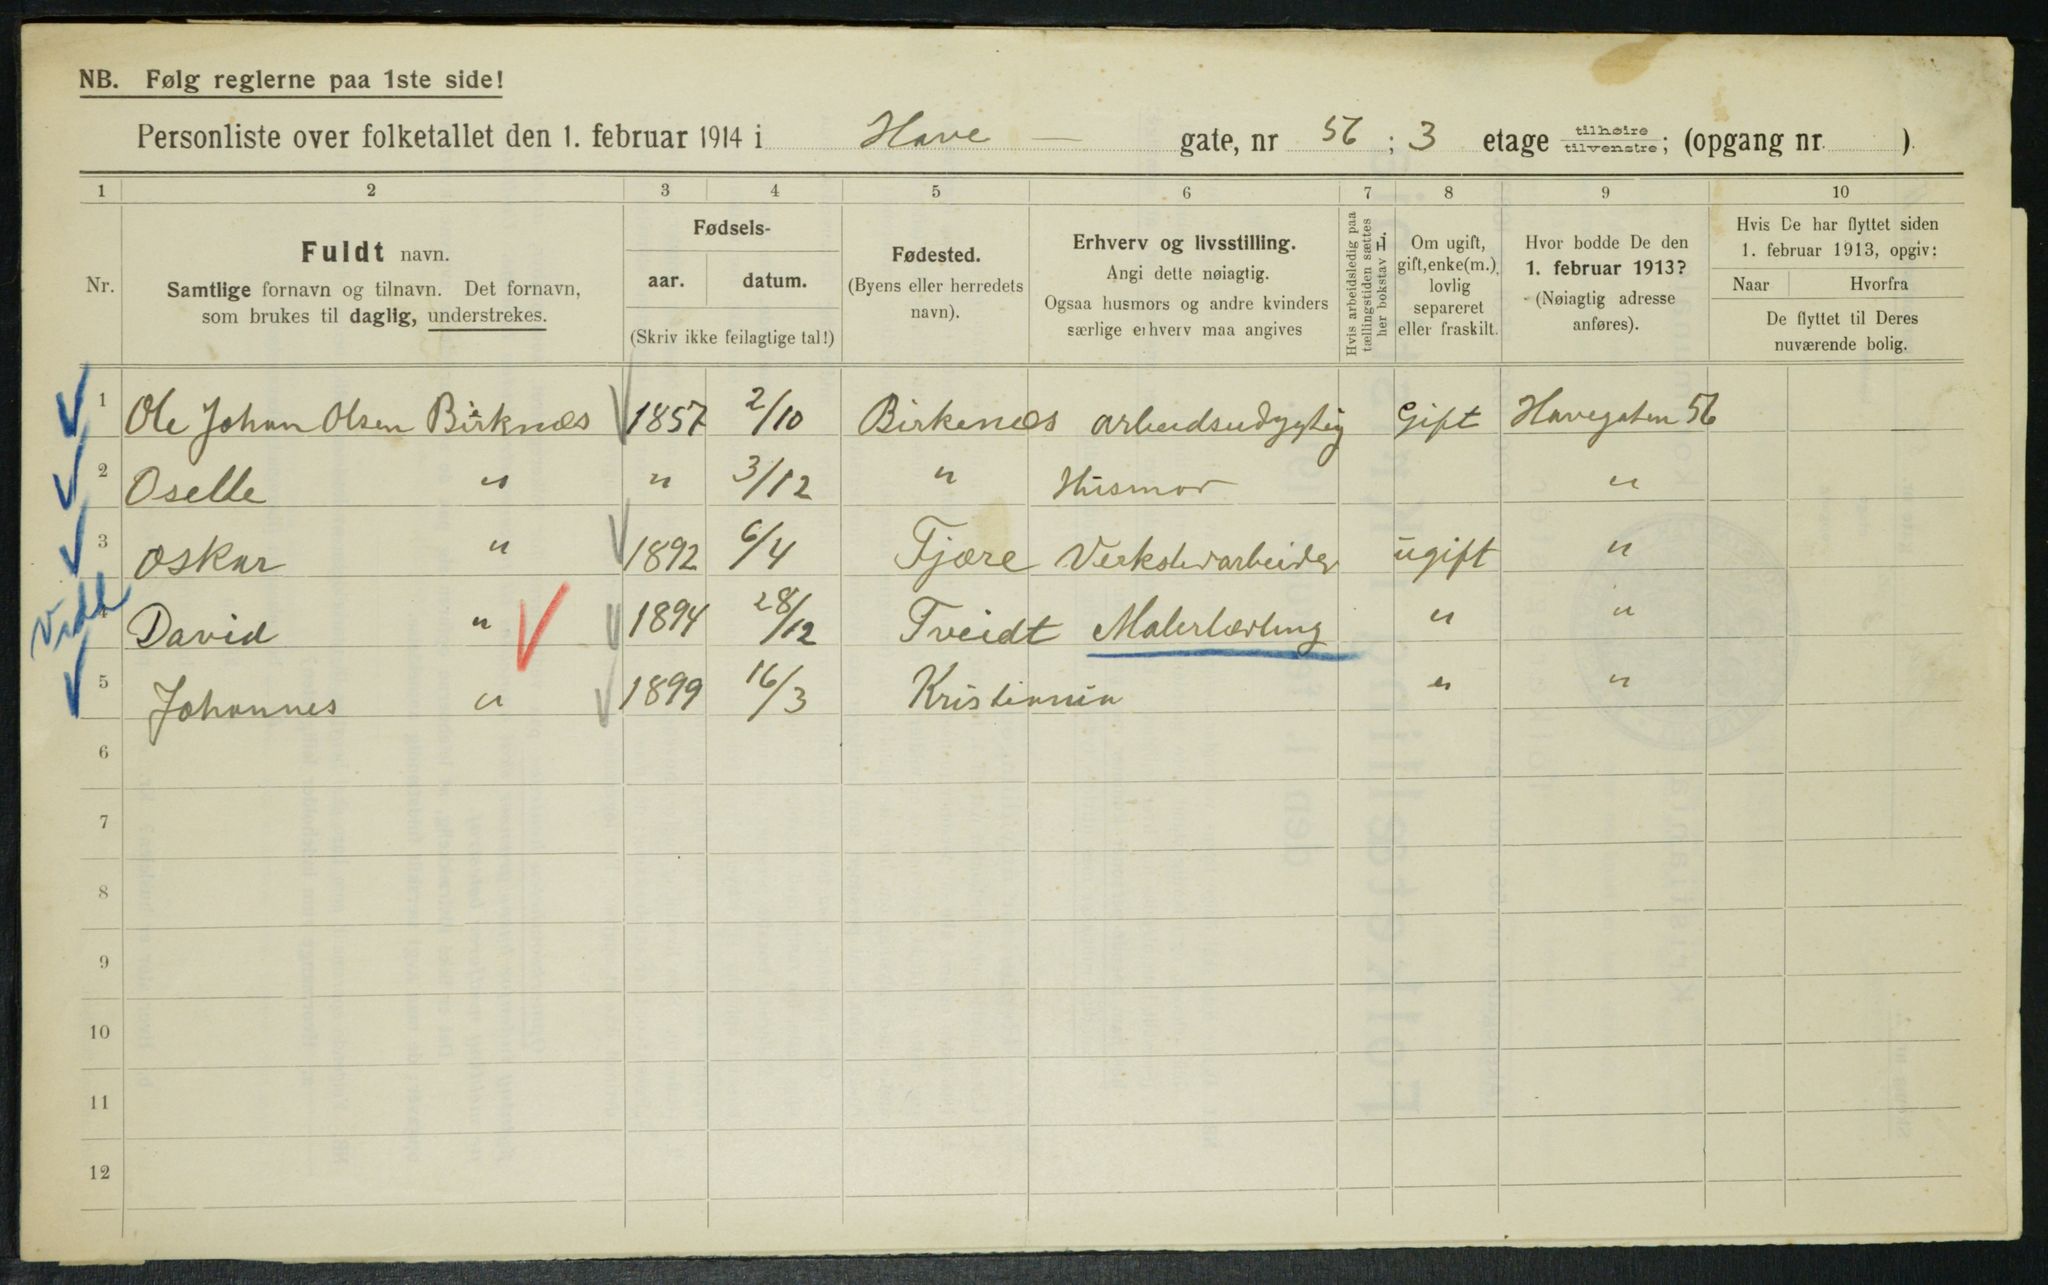 NB. Følg reglerne paa 1ste side!
Personliste over folketallet den 1. februar 1914 i Have — gate, nr 56 ; 3 etage tilhøire tilvenstre ; (opgang nr. ).
1 2 3 4 5 6 7 8 9 10
Nr.
Fuldt navn.
Samtlige fornavn og tilnavn. Det fornavn,
som brukes til daglig, understrekes.
Fødsels-
aar. datum.
(Skriv ikke feilagtige tal!)
Fødested.
(Byens eller herredets
navn).
Erhverv og livsstilling.
Angi dette nøiagtig.
Ogsaa husmors og andre kvinders
særlige erhverv maa angives
Hvis arbeidsledig paa
tællingstiden sættes
her bokstav L.
Om ugift,
gift, enke(m.),
lovlig
separeret
eller fraskilt.
Hvor bodde De den
1. februar 1913?
(Nøiagtig adresse
anføres).
Hvis De har flyttet siden
1. februar 1913, opgiv:
Naar Hvorfra
De flyttet til Deres
nuværende bolig.
1 Ole Johan Olsen Birknæs 1857 2/10 Birkenæs arbeidsudygtig Gift Havegaten 56
2 Oselle " " 3/12 " Husmor "
3 Oskar " 1892 6/4 Fjære Verkstedarbeider ugift "
4 David " 1894 28/12 Tveidt Malerlærling " "
5 Johannes " 1899 16/3 Kristiania " "
6
7
8
9
10
11
12